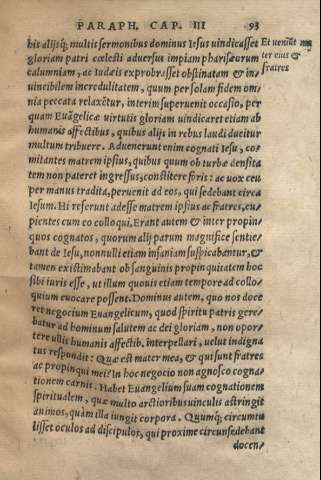 PARAPH. CAP. III 93
his alijsq; multis sermonibus dominus Iesus vindicasset
gloriam patri cœlesti adversus impiam pharisæorum
calumniam, ac Iudæis exprobrasset obstinatam & in/
vincibilem incredulitatem, quum per solam fidem om/
nia peccata relaxẽtur, interim supervenit occasio, per
quam Euãgelicæ virtutis gloriam vindicaret etiam ab
humanis affectibus, quibus alijs in rebus laudi ducitur
multum tribuere. Advenerunt enim cognati Iesu, co/
mitantes matrem ipsius, quibus quum ob turbæ densita
tem non pateret ingressus, constitere foris: ac vox ceu
per manus tradita, pervenit ad eos, qui sedebant circa
Iesum. Hi referunt adesse matrem ipsius ac fratres, cu/
pientes cum eo colloqui. Erant autem & inter propin/
quos cognatos, quorum alij parum magnifice sentie/
bant de Iesu, nonnulli etiam insaniam suspicabantur, &
tamen existimabant ob sanguinis propinquitatem hoc
sibi iuris esse, ut illum quovis etiam tempore ad collo/
quium evocare possent. Dominus autem, quo nos doce
ret negocium Euangelicum, quod spiritu patris gere/
batur ad hominum salutem ac dei gloriam, non opor/
tere ullis humanis affectib. interpellari, velut indigna
tus respondit: Quæ est mater mea, & qui sunt fratres
ac propinqui mei? In hoc negocio non agnosco cogna/
tionem carnis. Habet Euangelium suam cognationem
spiritualem, quæ multo arctioribus vinculis astringit
animos, quàm illa iungit corpora. Quumq; circumtu
lisset oculos ad discipulos, qui proxime circunsedebant
docen/
Et veniũt
ter eius &
fratres